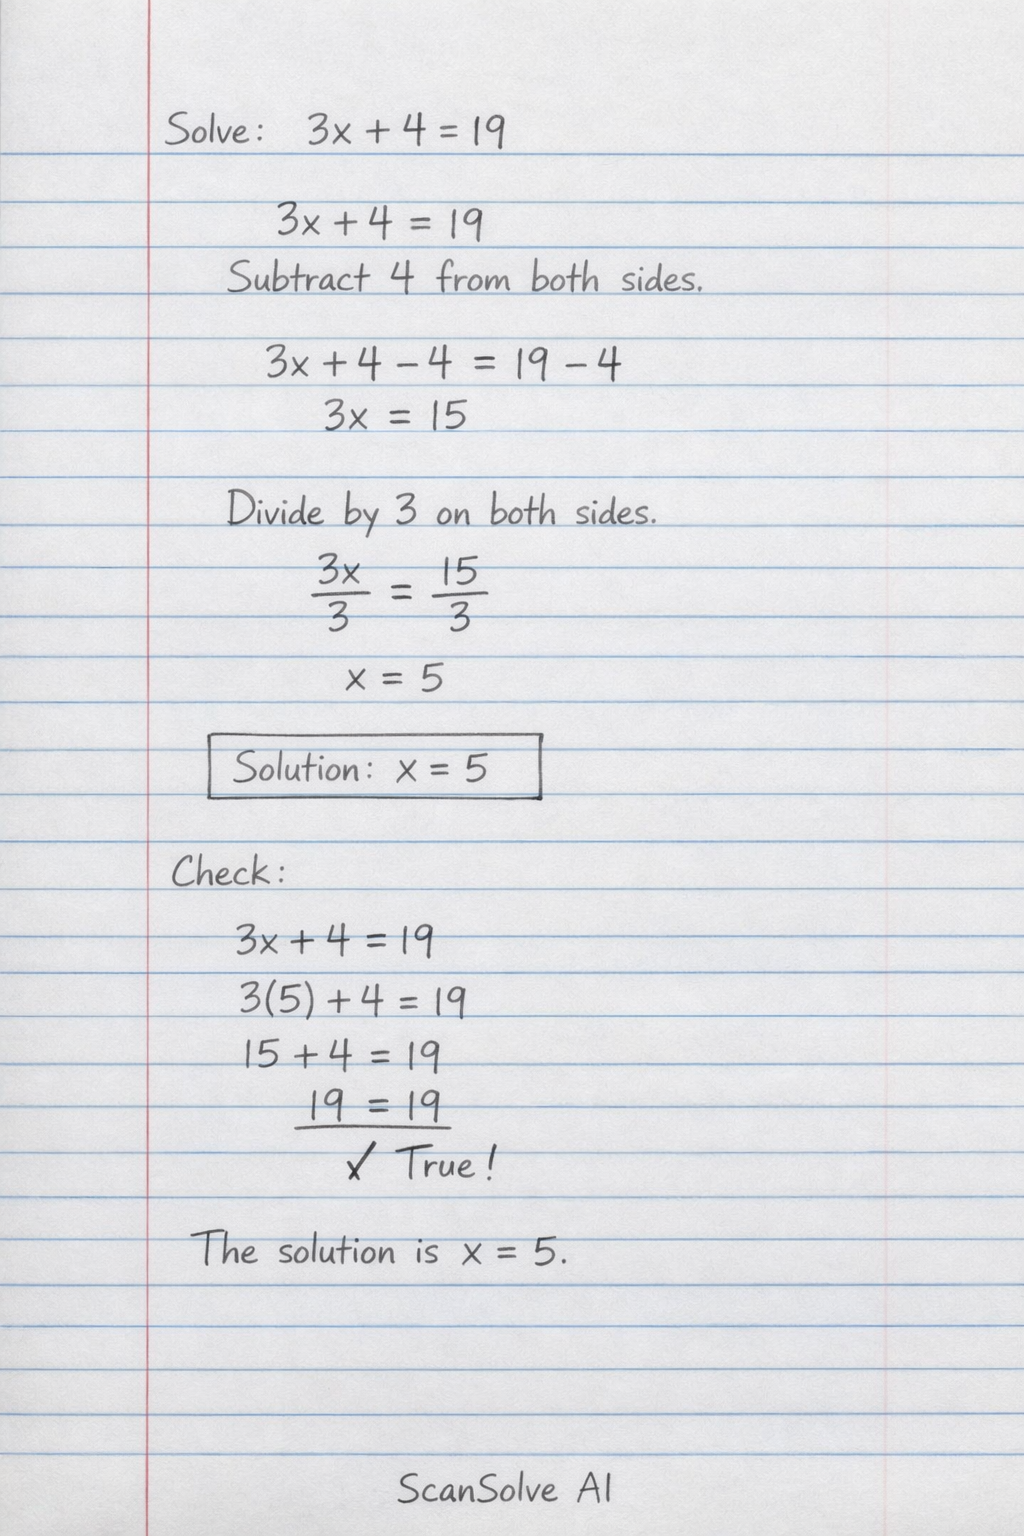 Solve: 3x + 4 = 19
3x + 4 = 19
Subtract 4 from both sides.
3x + 4 – 4 = 19 – 4
3x = 15
Divide by 3 on both sides.
3x/3 = 15/3
x = 5
Solution: x = 5
Check:
3x + 4 = 19
3(5) + 4 = 19
15 + 4 = 19
19 = 19
✓ True!
The solution is x = 5.
ScanSolve AI